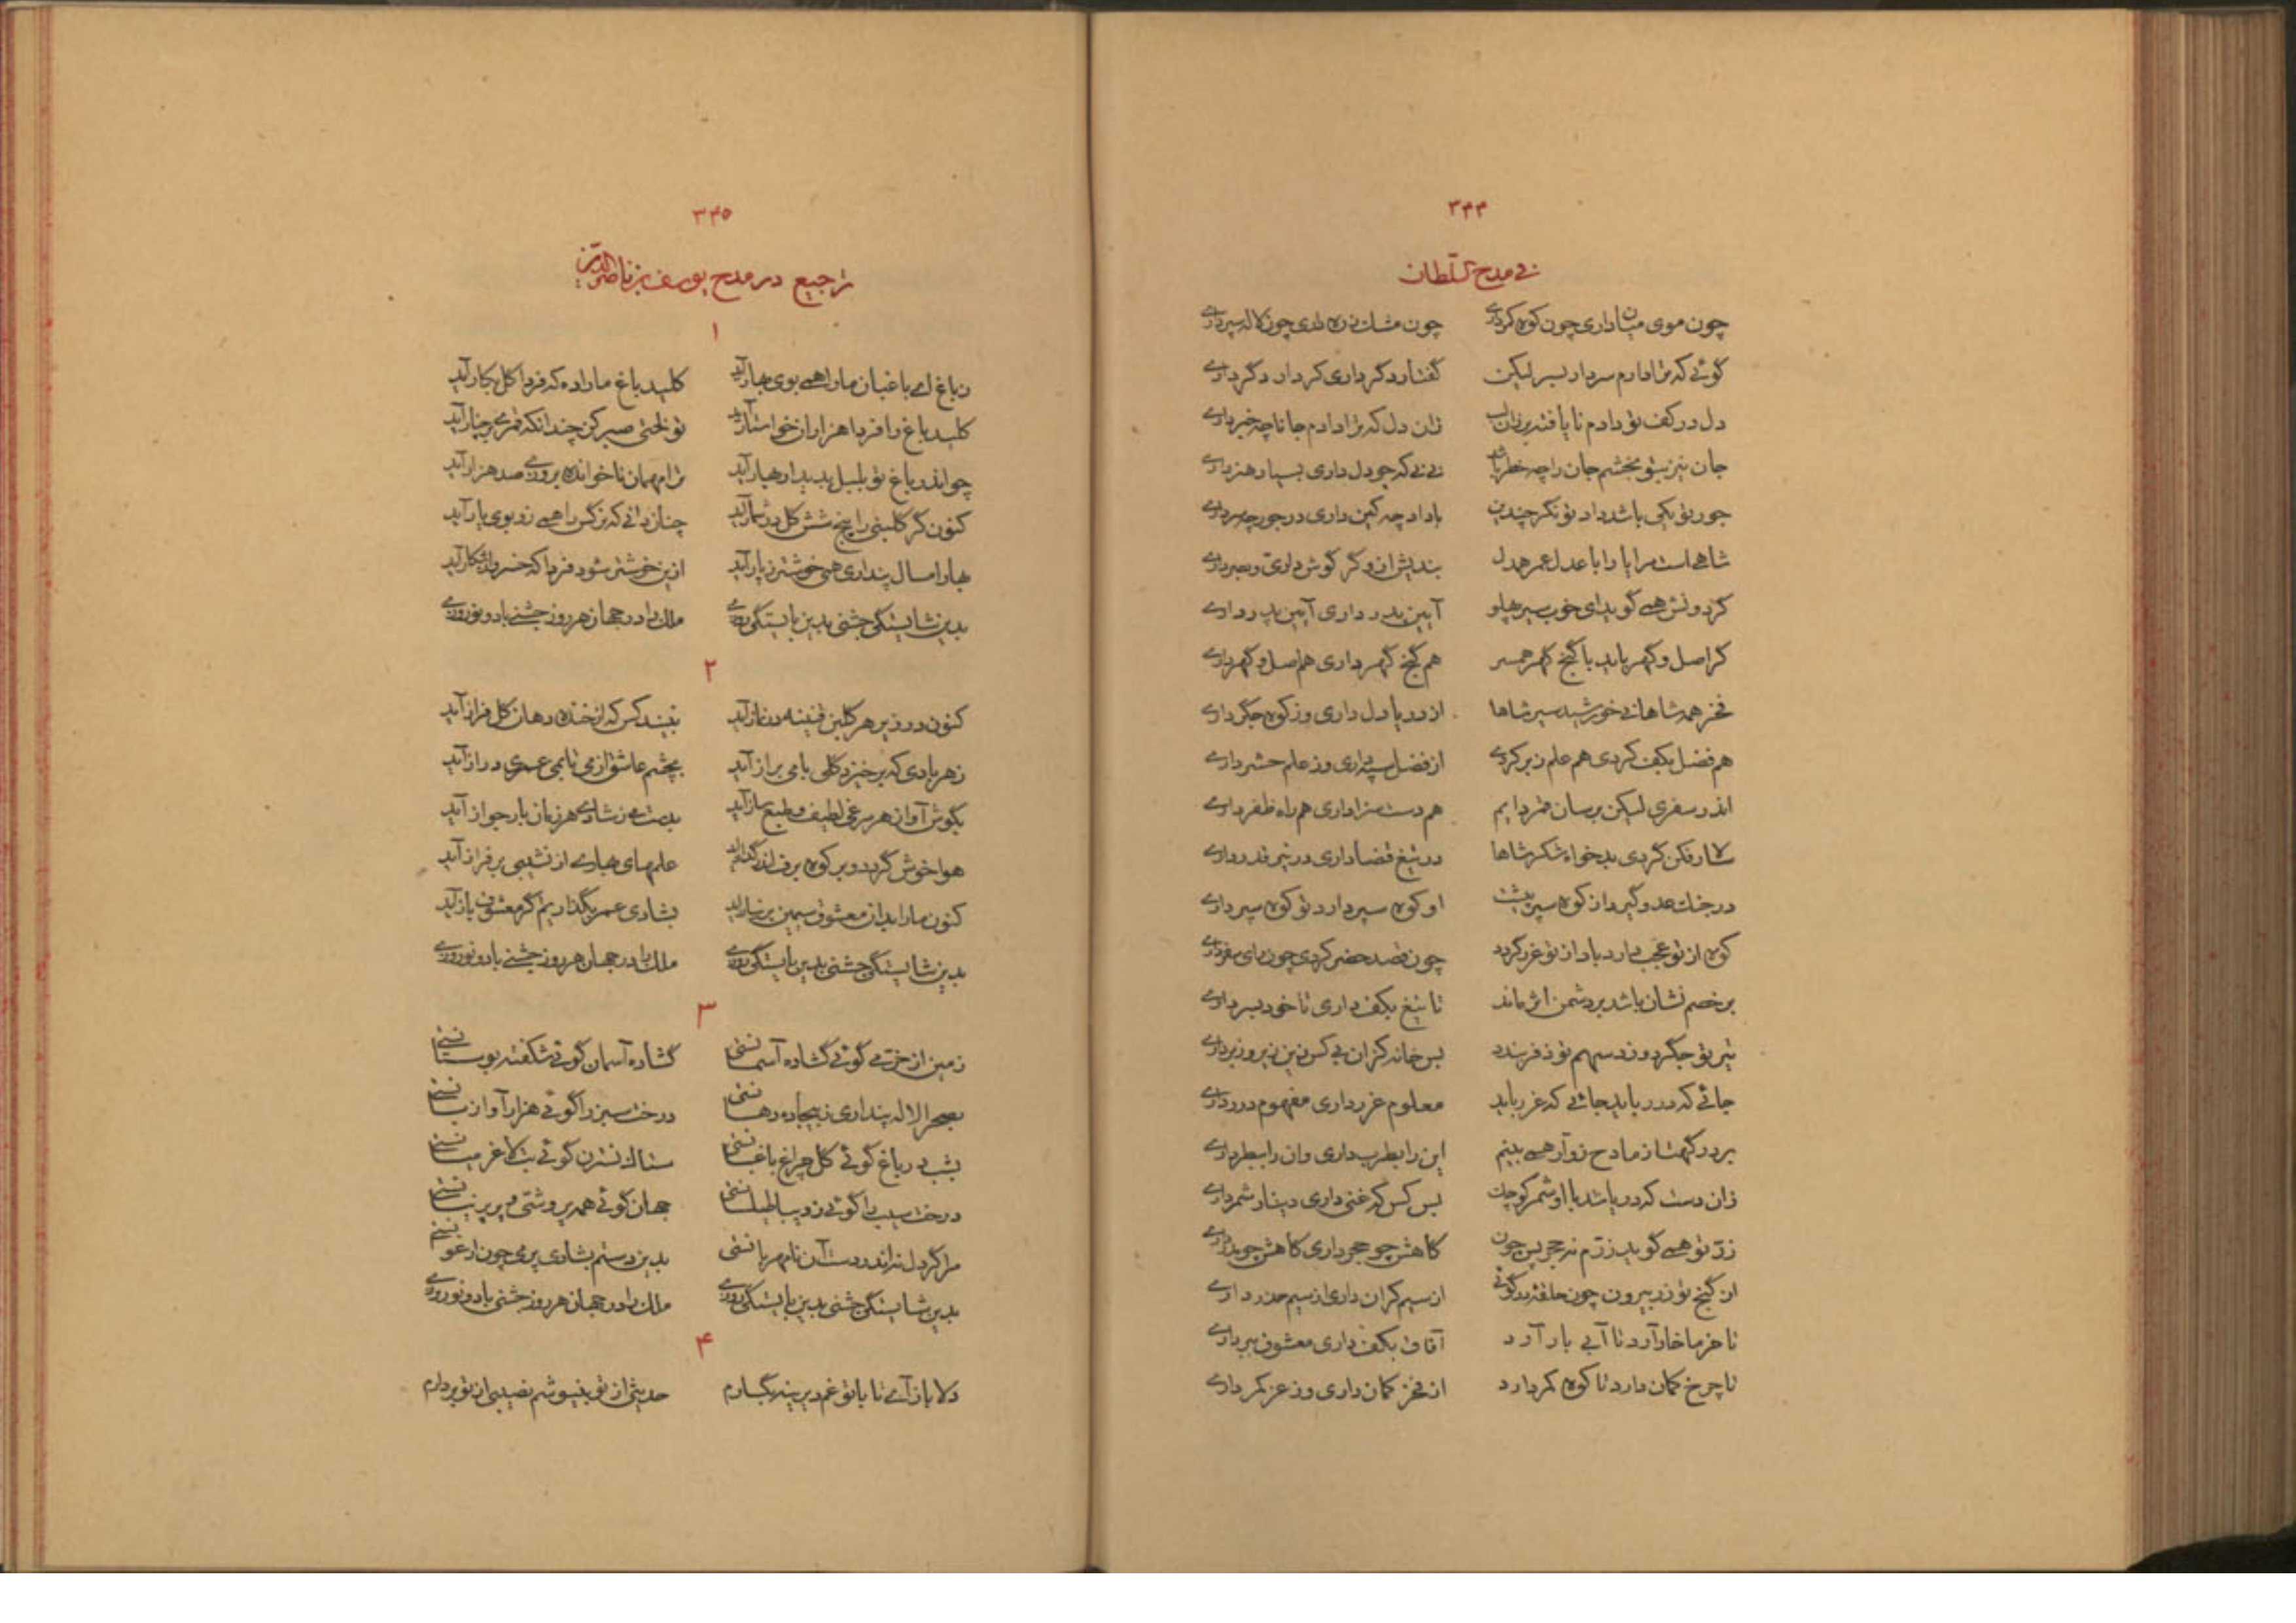 ۳۴۴
فی مدح السلطان
چون موی میان داری چون کوه کمر داری چون مشک زره داری چون لاله سپر داری
گوئی که ترا دارم سر دار بسر لیکن گفتار دگر داری کردار دگر داری
دل در کف تو دادم تا یافته بر زان دل که ترا دادم جانا چه خبر داری
جان نیز بتو بخشم جان را چه خطر باشد نی نی که چو دل داری بسیار هنر داری
جور تو یکی باشد داد تو نگر چندین با داد چه کین داری در جور چه سر داری
شاهی است مرا یارا با عدل عمر همدل بندیش ازو گر گوش داری و بصر داری
گردونش همی گوید ای خوب سیر پهلو آیین پدر داری آیین پدر داری
گر اصل و گهر باید با گنج گهر همسر هم گنج گهر داری هم اصل و گهر داری
فخر همه شاهانی خورشید سپر شاها از دریا دل داری وز کوه جگر داری
هم فضل بکف کردی هم علم زبر کردی از فضل سپه داری وز علم حشر داری
اندر سفری لیکن برسان قمر دایم هم دست سزا داری هم راه ظفر داری
کردی بدخواه شکر شاها در تیغ قضا داری در تیر قدر داری
در جنگ عدو گیرد از کوه سپر او کوه سپر دارد تو کوه سپر داری
کوه از تو عجب دارد باد از تو غرر گردد چون قصد حضر کردی چون رای سفر داری
بر خصم نشان باشد بر دشمن اثر ماند تا تیغ بکف داری تا خود بسر داری
تیر تو جگر دوزد سهم تو بس خانه کزان بی کس زین زیر و زبر داری
جائی که درر باید جائی که غرر باید معلوم غرر داری مفهوم درر داری
بر درگهت از مادح زوار همی بینم این را بطرب داری وان را ببطر داری
زان دست که دریا شد با او شمر کوچک بس کس که غنی داری دینار شمر داری
زر تو همی گوید زرم نه حجر پس چون کاهش چو حجر داری
از گنج تو زر بیرون چون حلقه بدر گوئی از سیم کران داری از سیم حذر داری
تا خرما خار آرد تا آبی بار آرد آفاق بکف داری معشوق ببر داری
تا چرخ کمان دارد تا کوه کمر دارد از فخر کمان داری وز عز کمر داری
۳۴۵
تراجیع در مدح یوسف بن ناصرالدین
۱
ز باغ ای باغبان ما را همی بوی بهار آید کلید باغ ما را ده که فردا گل بکار آید
کلید باغ را فردا هزاران خواستار آید تو لختی صبر کن چندانکه قمری بر چنار آید
چو اندر باغ تو بلبل بدیدار بهار آید ترا مهمان ناخوانده بروزی صد هزار آید
کنون گر گلبنی را پنج شش گل در شمار آید چنان دانی که هر کس را همی زو بوی یار آید
بهار امسال پنداری همی خوشتر ز پار آید ازین خوشتر شود فردا که خسرو از شکار آید
بدین شایستگی جشنی بدین بایستگی روزی ملک را در جهان هر روز جشنی باد و نوروزی
۲
کنون در زیر هر گلبن قنینه در نماز آید نبیند کس که از خنده دهان گل فراز آید
ز هر بادی که برخیزد گلی با می براز آید بچشم عاشق از می تا بمی عمری دراز آید
بگوش آواز هر مرغی لطیف و طبع ساز آید بدست می ز شادی هر زمان بار جواز آید
هوا خوش گردد و بر کوه برف اندر گداز آید علمهای بهاری از نشیبی بر فراز آید
کنون ما را بدان معشوق سیمین بر نیاز آید بشادی عمر بگذاریم گر معشوق باز آید
بدین شایستگی جشنی بدین بایستگی روزی ملک را در جهان هر روز جشنی باد و نوروزی
۳
زمین از خرمی گوئی گشاده آسمانستی گشاده آسمان گوئی شکفته بوستانستی
بصحرا لاله پنداری ز بیجاده دهانستی درخت سبز را گوئی هزار آوا زبانستی
بشب در باغ گوئی گل چراغ باغبانستی ستاک نسترن گوئی بت لاغر میانستی
درخت سیب را گوئی ز دیبا طیلسانستی جهان گوئی همه پر وشی و پر پرنیانستی
مرا گر دل نه اندر دست آن نامهربانستی بدین دستم بشادی پر می چون ارغوانستی
بدین شایستگی جشنی بدین بایستگی روزی ملک را در جهان هر روز جشنی باد و نوروزی
۴
دلا باز آی تا با تو غم دیرینه بگسارم حدیثی از تو بنیوشم نصیبی از تو بردارم